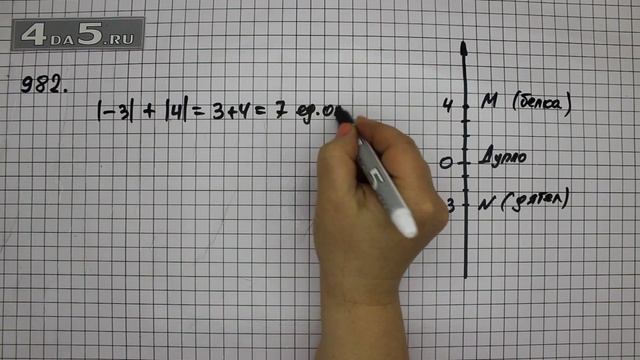 4DA5.RU
982.
|-3| + |4| = 3+4 = 7 ед.
4 М (белка)
0 Дупло
3 N (дятел)